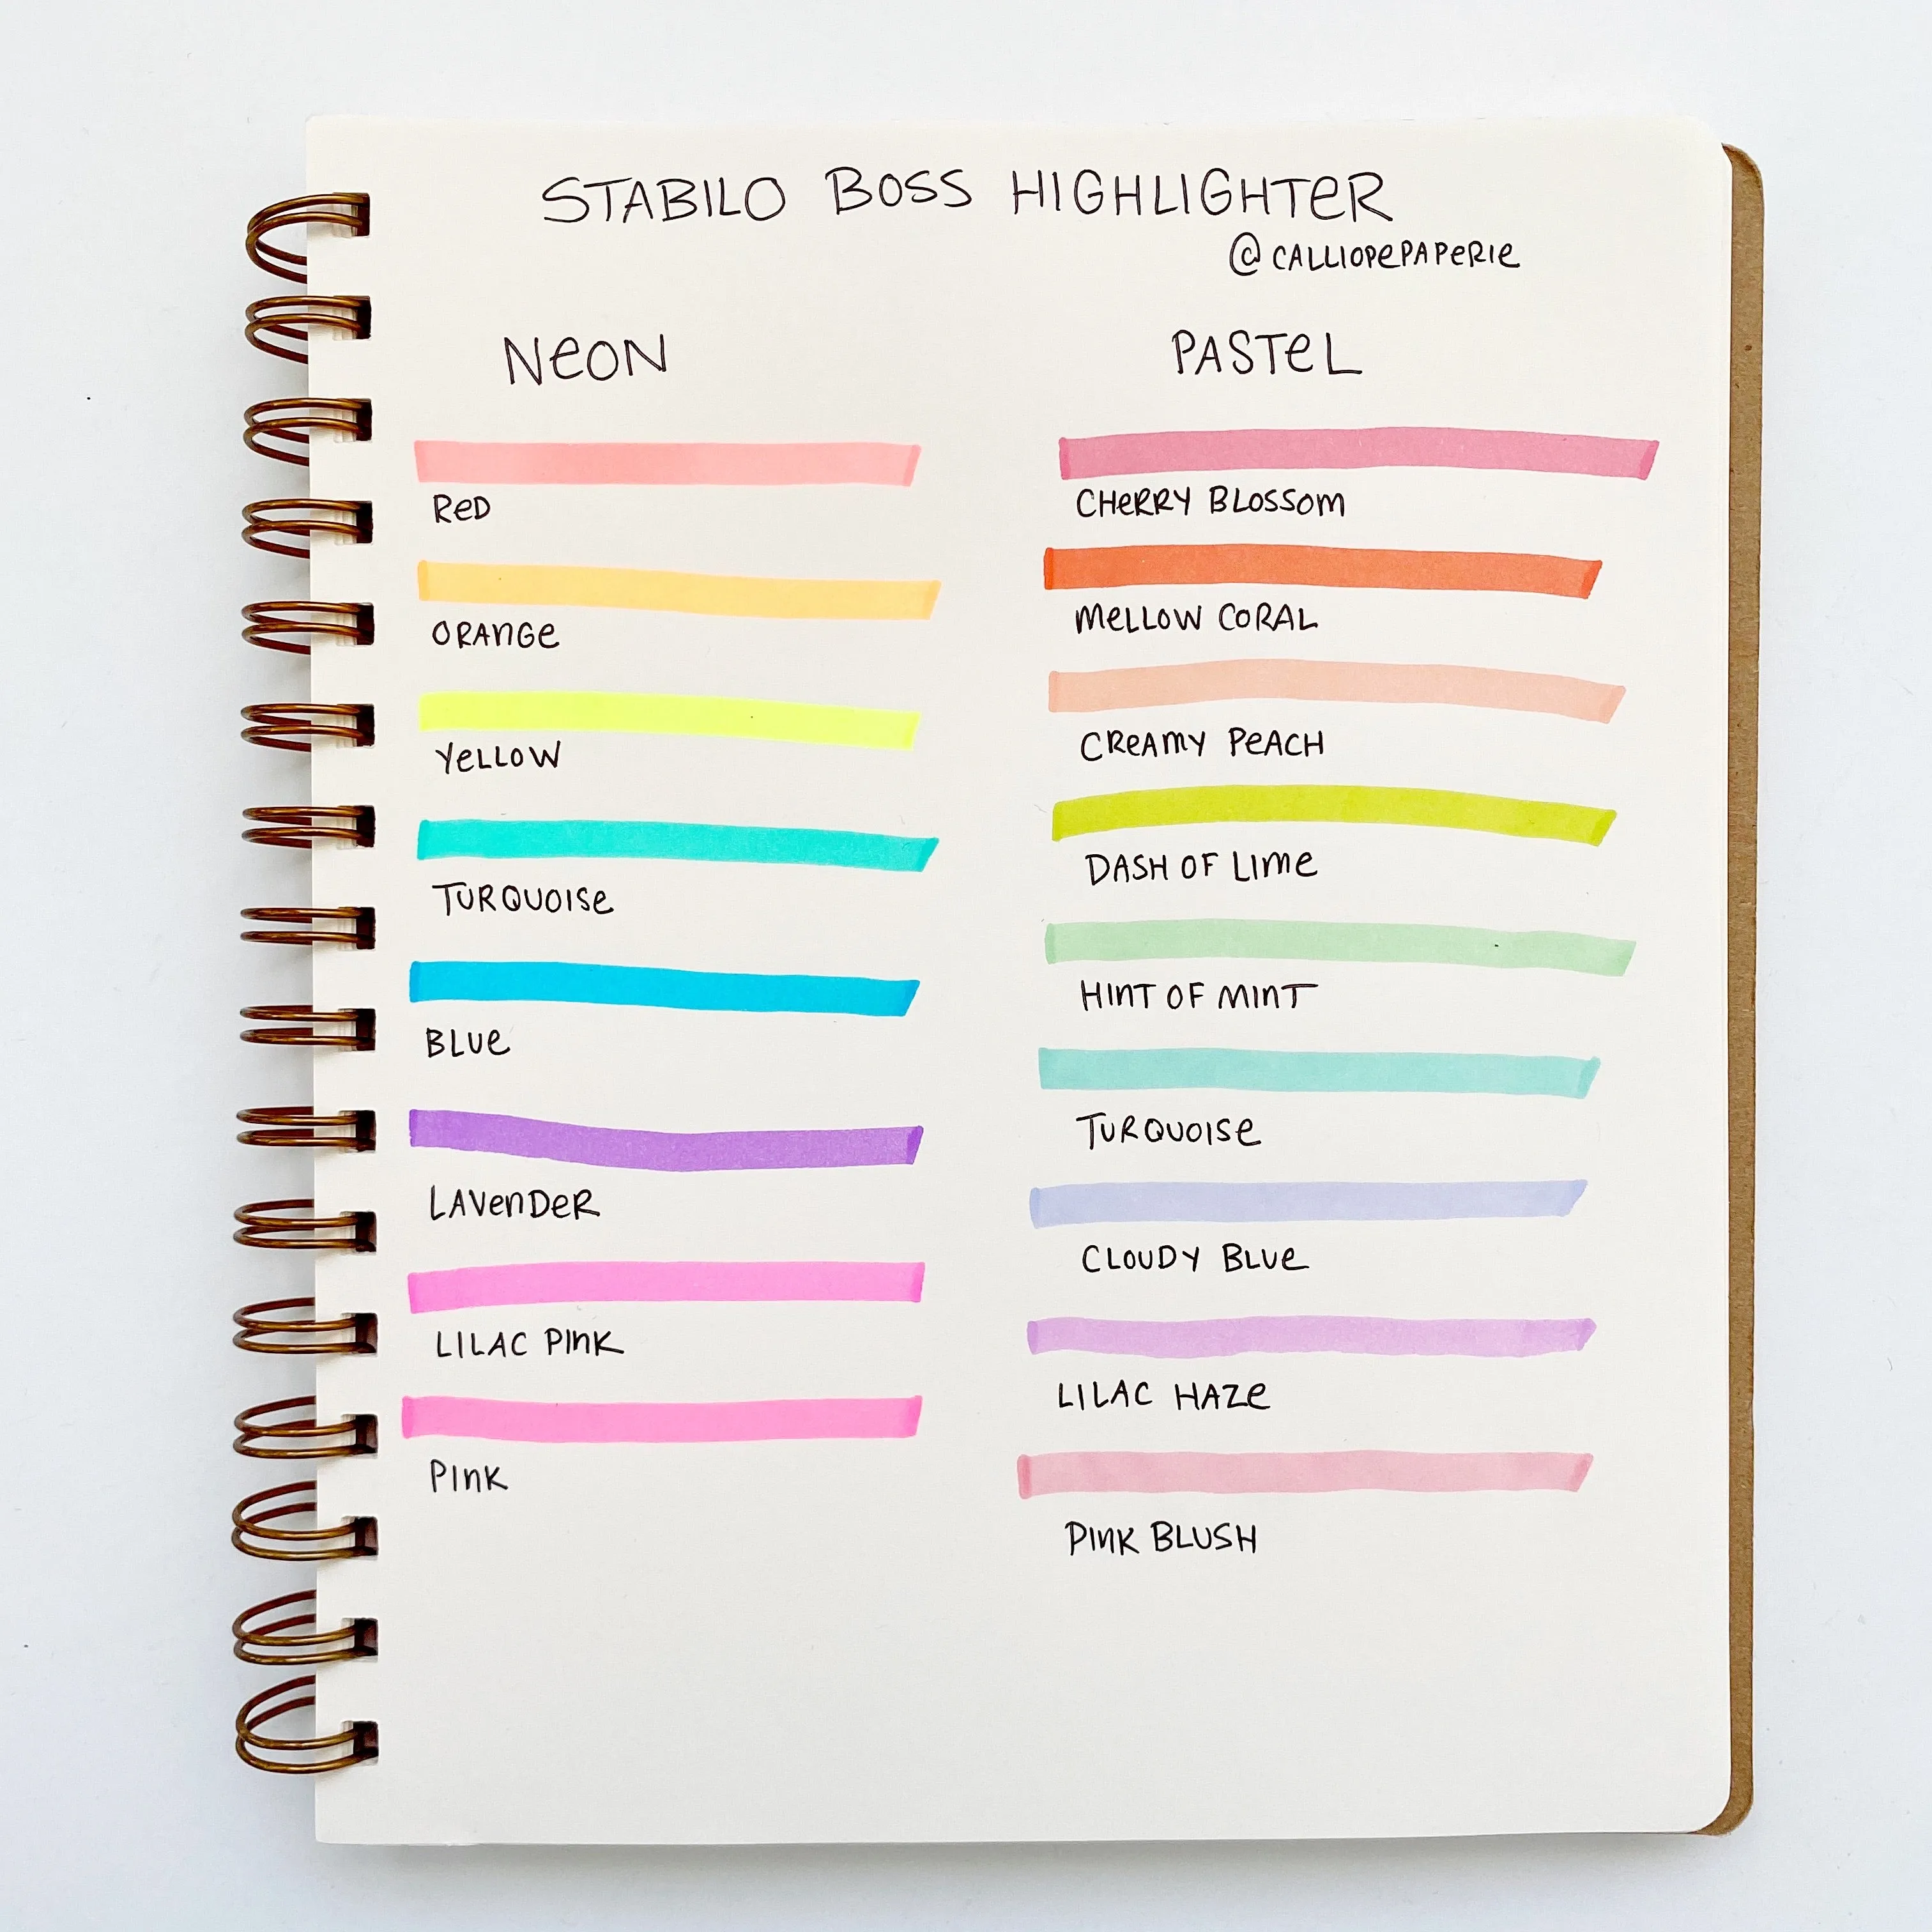 STABILO BOSS HIGHLIGHTER
@CALLIOPEPAPERIE
NEON
RED
ORANGE
YELLOW
TURQUOISE
BLUE
LAVENDER
LILAC PINK
PINK
PASTEL
CHERRY BLOSSOM
MELLOW CORAL
CREAMY PEACH
DASH OF LIME
HINT OF MINT
TURQUOISE
CLOUDY BLUE
LILAC HAZE
PINK BLUSH